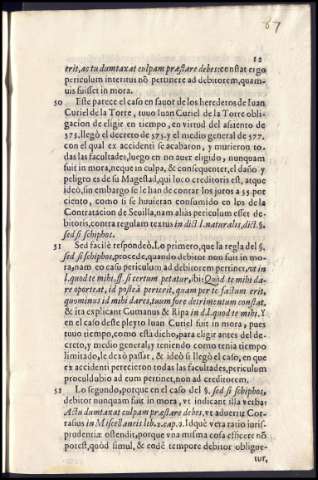 67
12
erit, ac tu dumtaxat culpam præstare debes: constat ergo
periculum interitus nõ pertinere ad debitorem, quam-
uis fuisset in mora.
50 Este parece el caso en fauor de los herederos de Iuan
Curiel de la Torre, tuuo Iuan Curiel de la Torre obli-
gacion de eligir en tiempo, en virtud del assiento de
575. llegò el decreto de 575. y el medio general de 577.
con el qual ex accidenti se acabaron, y murieron to-
das las facultades, luego en no auer eligido, nunquam
fuit in mora, neque in culpa, & consequenter, el daño y
peligro es de su Magestad, qui loco creditoris est, atque
ideò, sin embargo se le han de contar los juros a 35 por
ciento, como si se huuieran consumido en los de la
Contratacion de Seuilla, nam aliàs periculum esset de-
bitoris, contra regulam textus in dict l. naturales, dict. §.
sed si schiphos.
51 Sed facilè respondeò. Lo primero, que la regla del §.
sed si schiphos, procede, quando debitor non fuit in mo-
ra, nam eo casu periculum ad debitorem pertinet, vt in
l. quod te mihi. ff. si certum petatur, ibi: Quòd te mihi da-
re oporteat, id posteà perierit, quam per te factum erit,
quominus id mihi dares, tuum fore detrimentum constat,
& ita explicant Cumanus & Ripa in d.l. quod te mihi. Y
en el caso deste pleyto Iuan Curiel fuit in mora, pues
tuuo tiempo, como esta dicho, para eligir antes del de-
creto, y medio general, y teniendo como tenia tiempo
limitado, le dexò passar, & ideò si llegò el caso, en que
ex accidenti perecieron todas las facultades, periculum
proculdubio ad eum pertinet, non ad creditorem.
52 Lo segundo, porque en el caso del §. sed si schiphos,
debitor nunquam fuit in mora, vt indicant illa verba:
Ac tu dumtaxat culpam præstare debes, vt aduertit Cor-
rasius in Miscellaneis lib. 2. cap. 2. Idquè vera ratio iuris-
prudentiæ ostendit, porque vna misma cosa efficere nõ
potest, quòd simul, & eodẽ tempore debitor obligue-
tur,